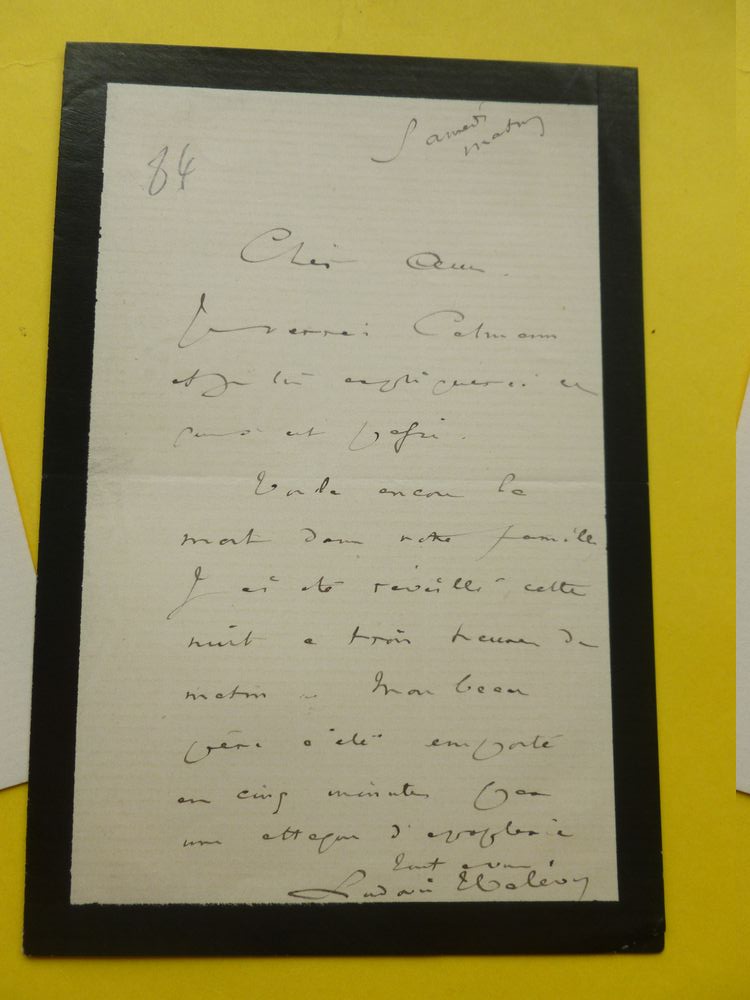 Samedi
matin
84
Cher Ami.
Je verrai Calmann
et je lui expliquerai ce
qui s'est passé.
Voilà encore la
mort dans notre famille
J'ai été réveillé cette
nuit a trois heures du
matin. Mon beau
père a été emporté
en cinq minutes par
une attaque d'apoplexie
Tout à vous
Ludovic Halévy